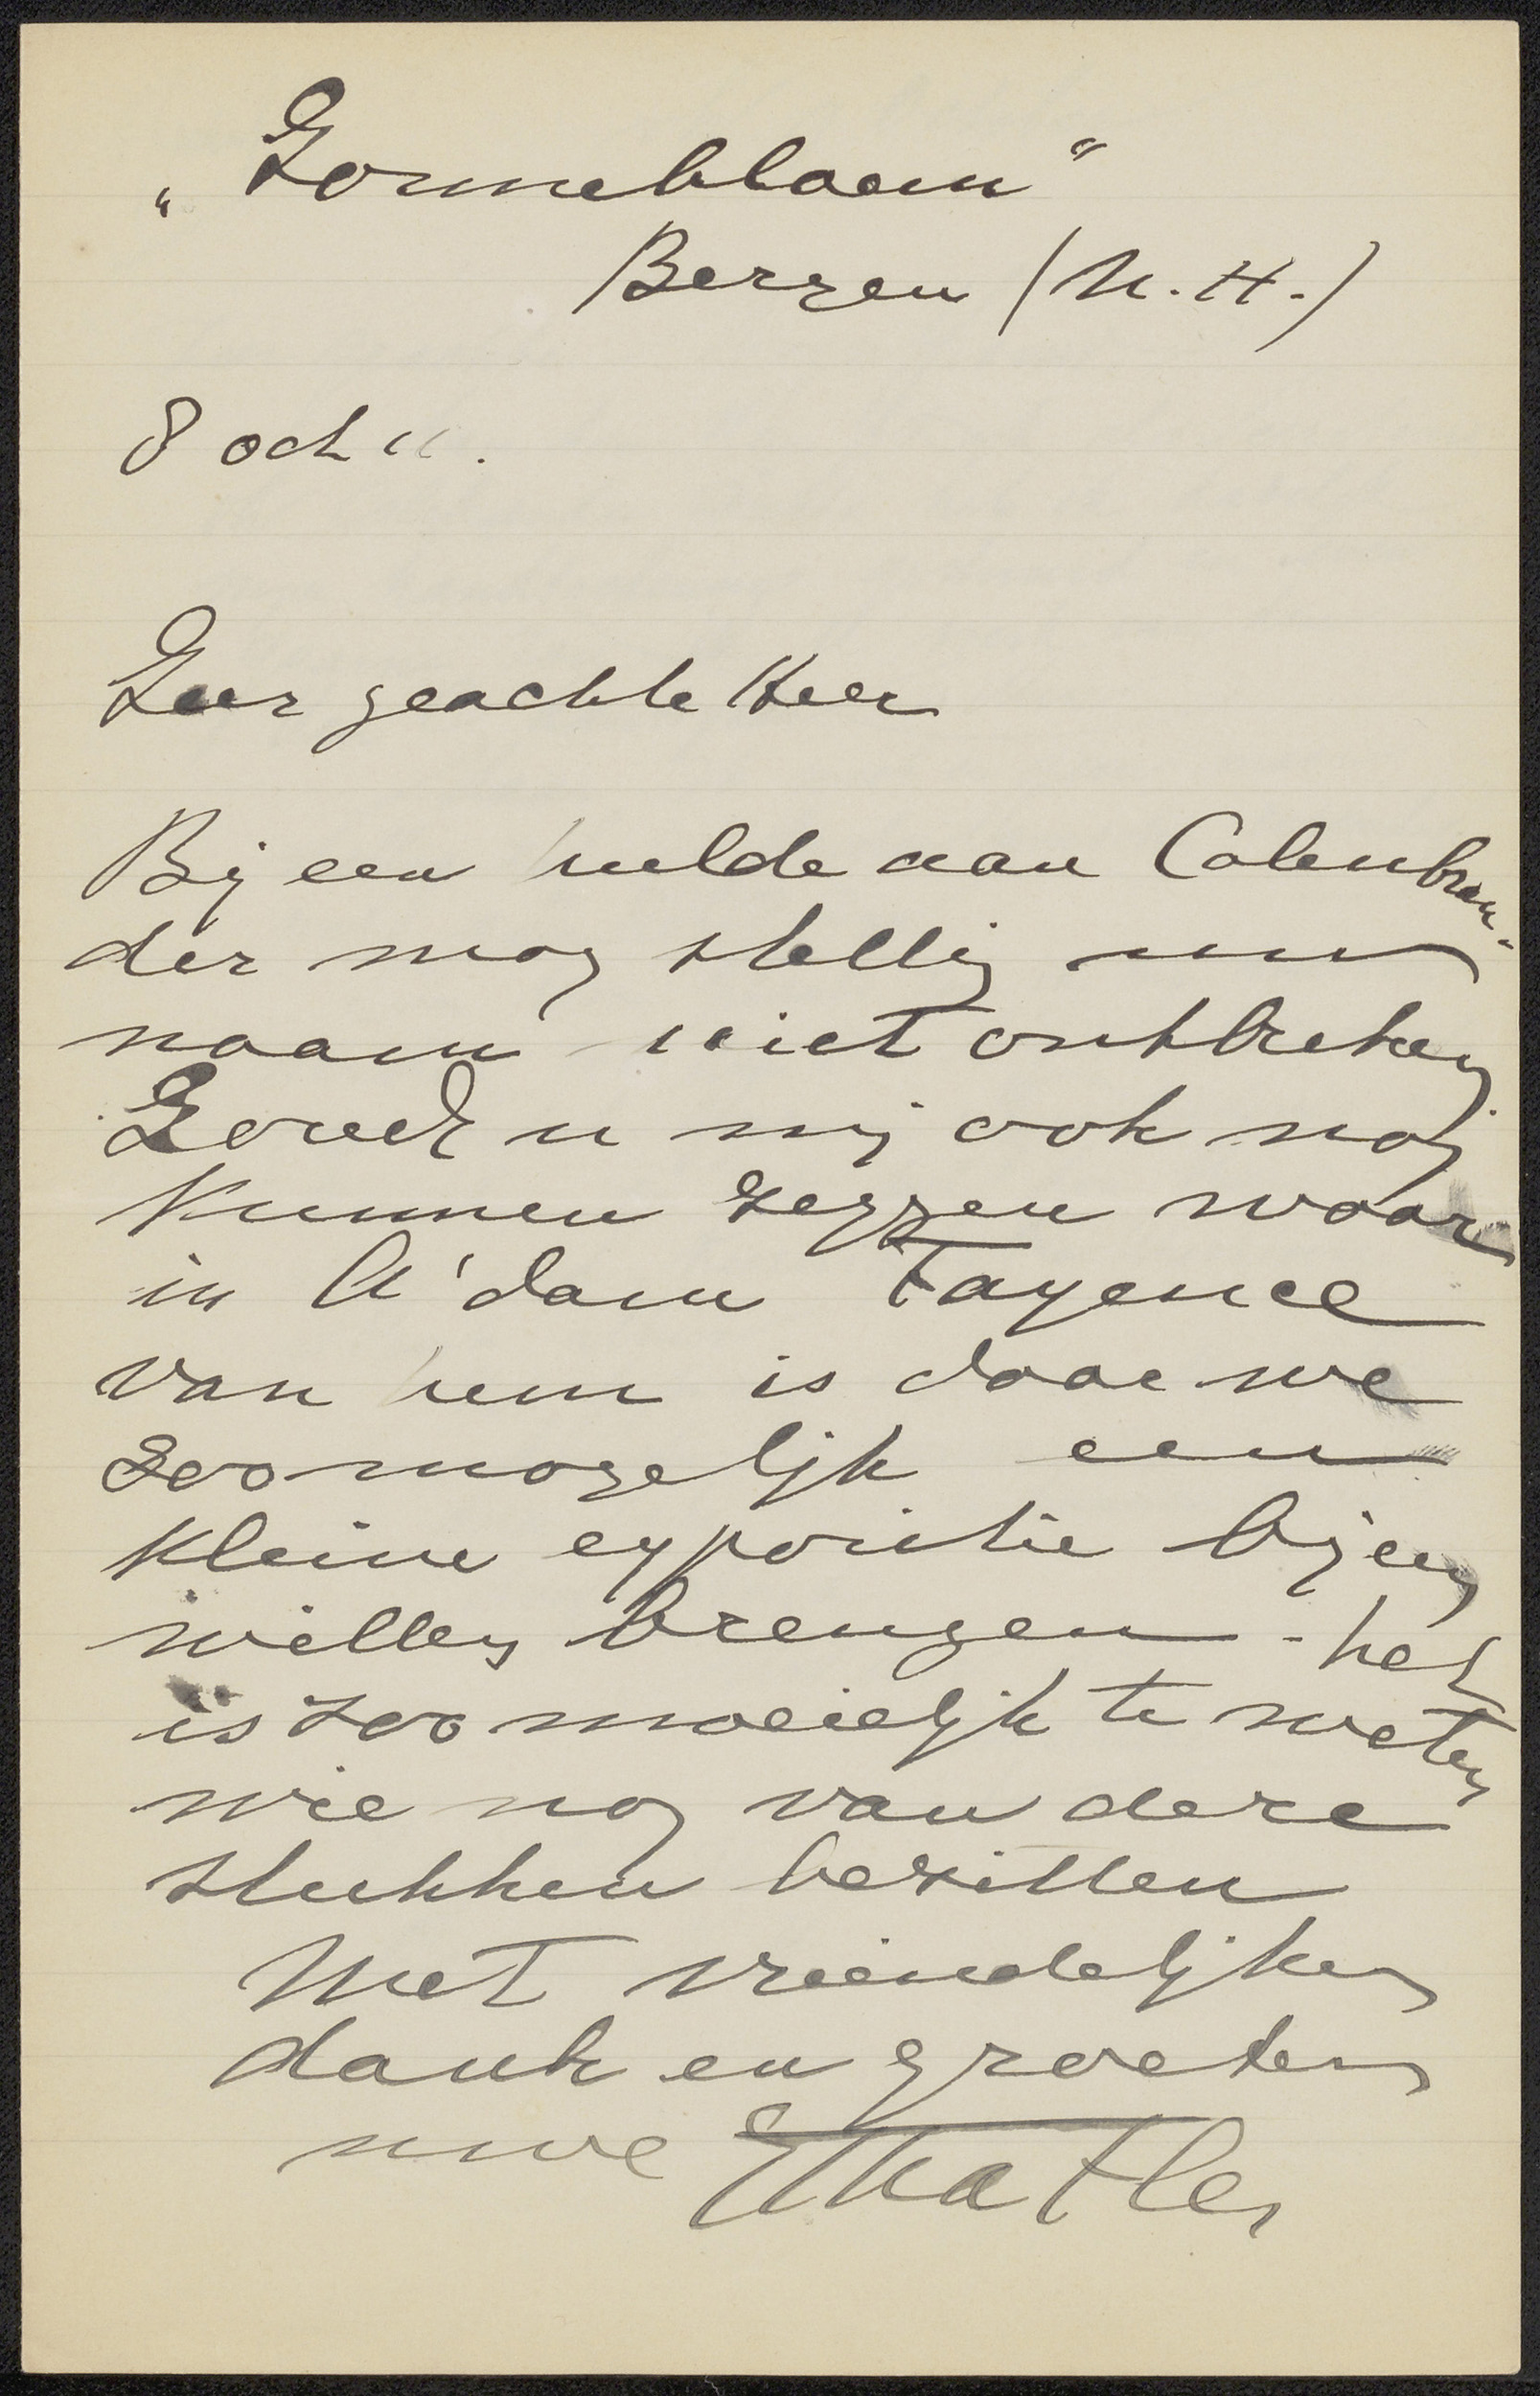 „Zonnebloem"
Bergen (N.H.)
8 oct 11.
Zeer geachte Heer
Bij een hulde aan Colenbran-
der mag stellig uw
naam niet ontbreken
Zoudt u mij ook nog
kunnen zeggen waar
in A'dam Fayence
van hem is daar we
zoo mogelijk een
kleine expositie bijeen
willen brengen - het
is zoo moeielijk te weten
wie nog van deze
stukken bezitten
Met vriendelijken
dank en groeten
uwe